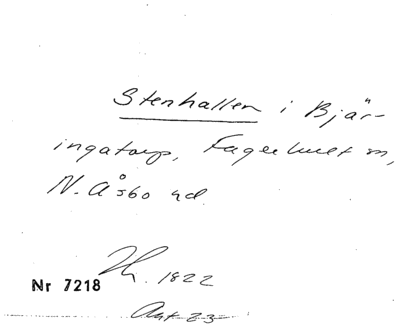 Stenhallen i Bjär-
ingatorp, Fagerhult sn,
N. Åsbo hd
Nr 7218 Th. 1822
Ant 23